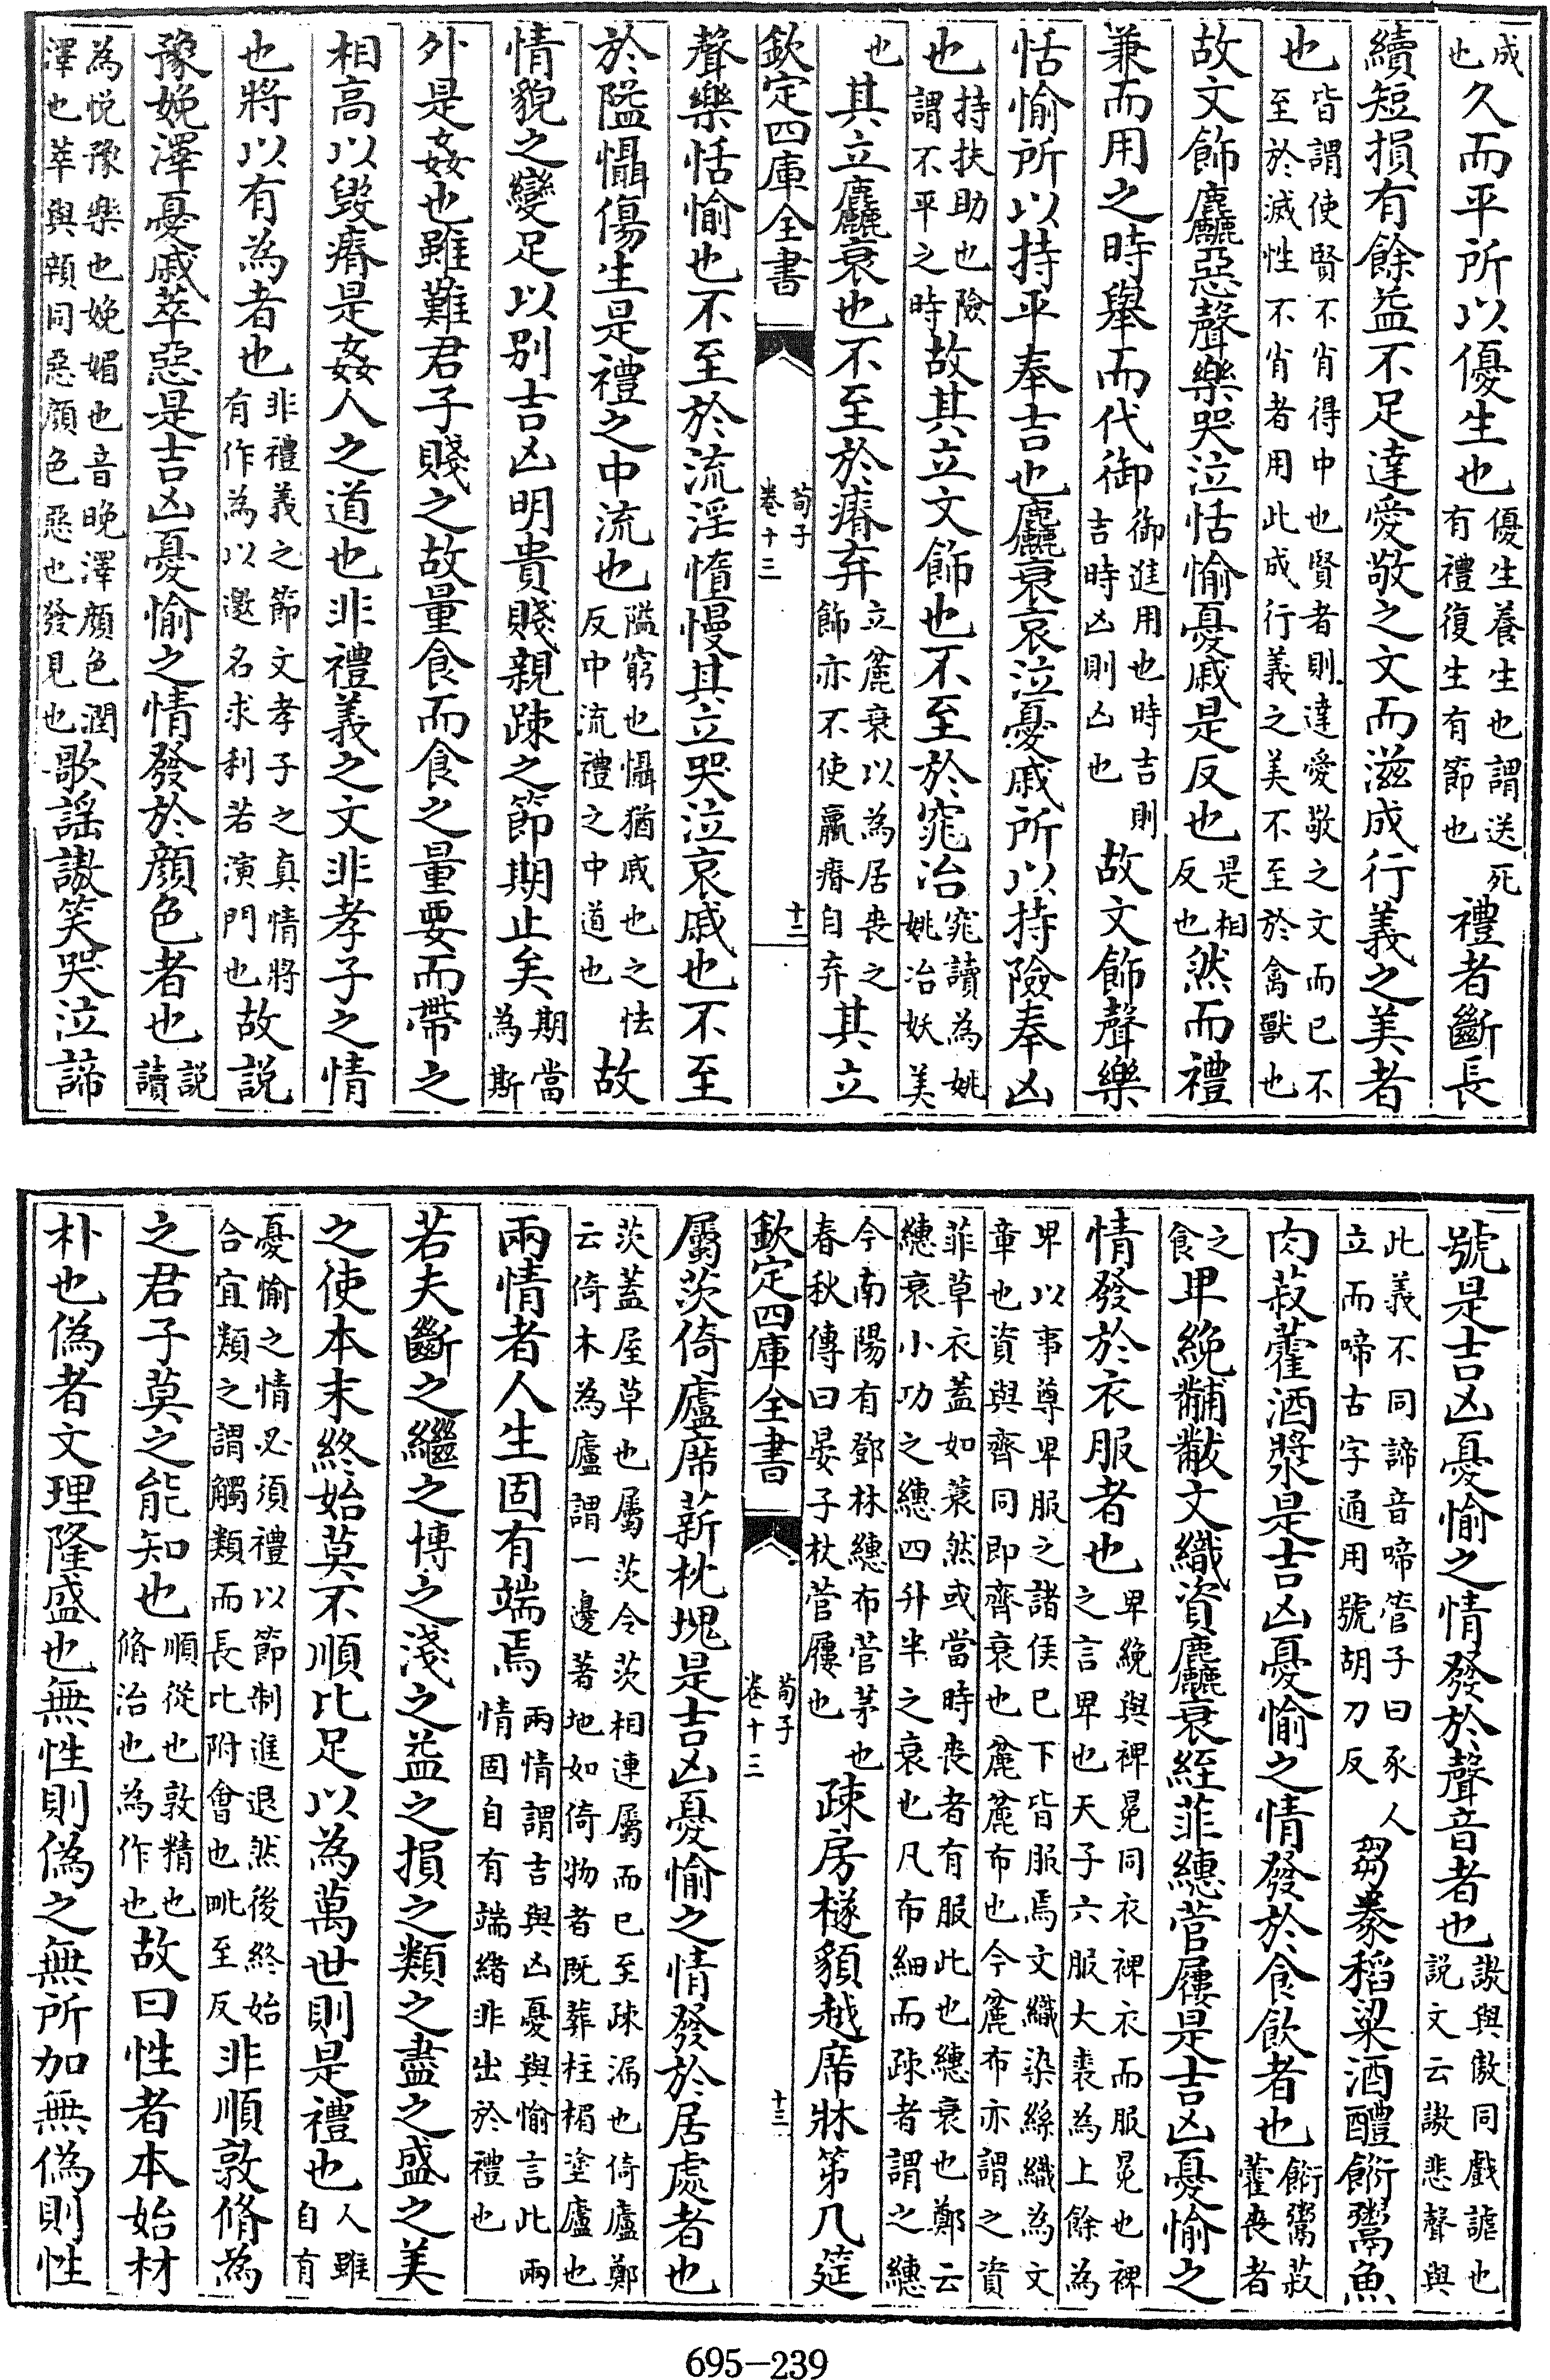 成也久而平所以優生也優生養生也謂送死有禮復生有節也禮者斷長
續短損有餘益不足達愛敬之文而滋成行義之美者
也皆謂使賢不肖得中也賢者則達愛敬之文而已不至於滅性不肖者用此成行義之美不至於禽獸也
故文飾麤惡聲樂哭泣恬愉憂戚是反也是相反也然而禮
兼而用之時舉而代御御進用也時吉則吉時凶則凶也故文飾聲樂
恬愉所以持平奉吉也麤衰哀泣憂戚所以持險奉凶
也持扶助也險謂不平之時故其立文飾也不至於窕冶窕讀為姚姚冶妖美
也其立麤衰也不至於瘠弃立麄衰以為居喪之飾亦不使羸瘠自弃其立
欽定四庫全書
荀子
卷十三
十三
聲樂恬愉也不至於流淫惰慢其立哭泣哀戚也不至
於隘懾傷生是禮之中流也隘窮也懾猶戚也之怯反中流禮之中道也故
情貌之變足以别吉凶明貴賤親疎之節期止矣期當為斯
外是姦也雖難君子賤之故量食而食之量要而帶之
相高以毀瘠是姦人之道也非禮義之文非孝子之情
也將以有為者也非禮義之節文孝子之真情將有作為以邀名求利若演門也故說
豫娩澤憂戚萃惡是吉凶憂愉之情發於顔色者也説讀
為悦豫樂也娩媚也音晚澤顔色潤澤也萃與顇同惡顔色惡也發見也歌謡謸笑哭泣諦
號是吉凶憂愉之情發於聲音者也謸與傲同戲謔也説文云謸悲聲與
此義不同諦音啼管子曰豕人立而啼古字通用號胡刀反芻豢稻粱酒醴餰鬻魚
肉菽藿酒漿是吉凶憂愉之情發於食飲者也餰鬻菽藿喪者
之食卑絻黼黻文織資麤衰絰菲繐菅屨是吉凶憂愉之
情發於衣服者也卑絻與裨冕同衣裨衣而服冕也裨之言卑也天子六服大裘為上餘為
卑以事尊卑服之諸侯已下皆服焉文織染絲織為文章也資與齊同即齊衰也麄麄布也今麄布亦謂之資
菲草衣蓋如蓑然或當時喪者有服此也繐衰也鄭云繐衰小功之繐四升半之衰也凡布細而疎者謂之繐
今南陽有鄧林繐布菅茅也春秋傳曰晏子杖菅屨也疎房檖䫉越席牀第几筵
欽定四庫全書
荀子
卷十三
十三
屬茨倚廬席薪枕塊是吉凶憂愉之情發於居處者也
茨蓋屋草也屬茨令茨相連屬而已至疎漏也倚廬鄭云倚木為廬謂一邊著地如倚物者既葬柱楣塗廬也
兩情者人生固有端焉兩情謂吉與凶憂與愉言此兩情固自有端緒非出於禮也
若夫斷之繼之博之淺之益之損之類之盡之盛之美
之使本末終始莫不順比足以為萬世則是禮也人雖自有
憂愉之情必須禮以節制進退然後終始合宜類之謂觸類而長比附會也毗至反非順孰脩為
之君子莫之能知也順從也孰精也脩治也為作也故曰性者本始材
朴也偽者文理隆盛也無性則偽之無所加無偽則性
695-239